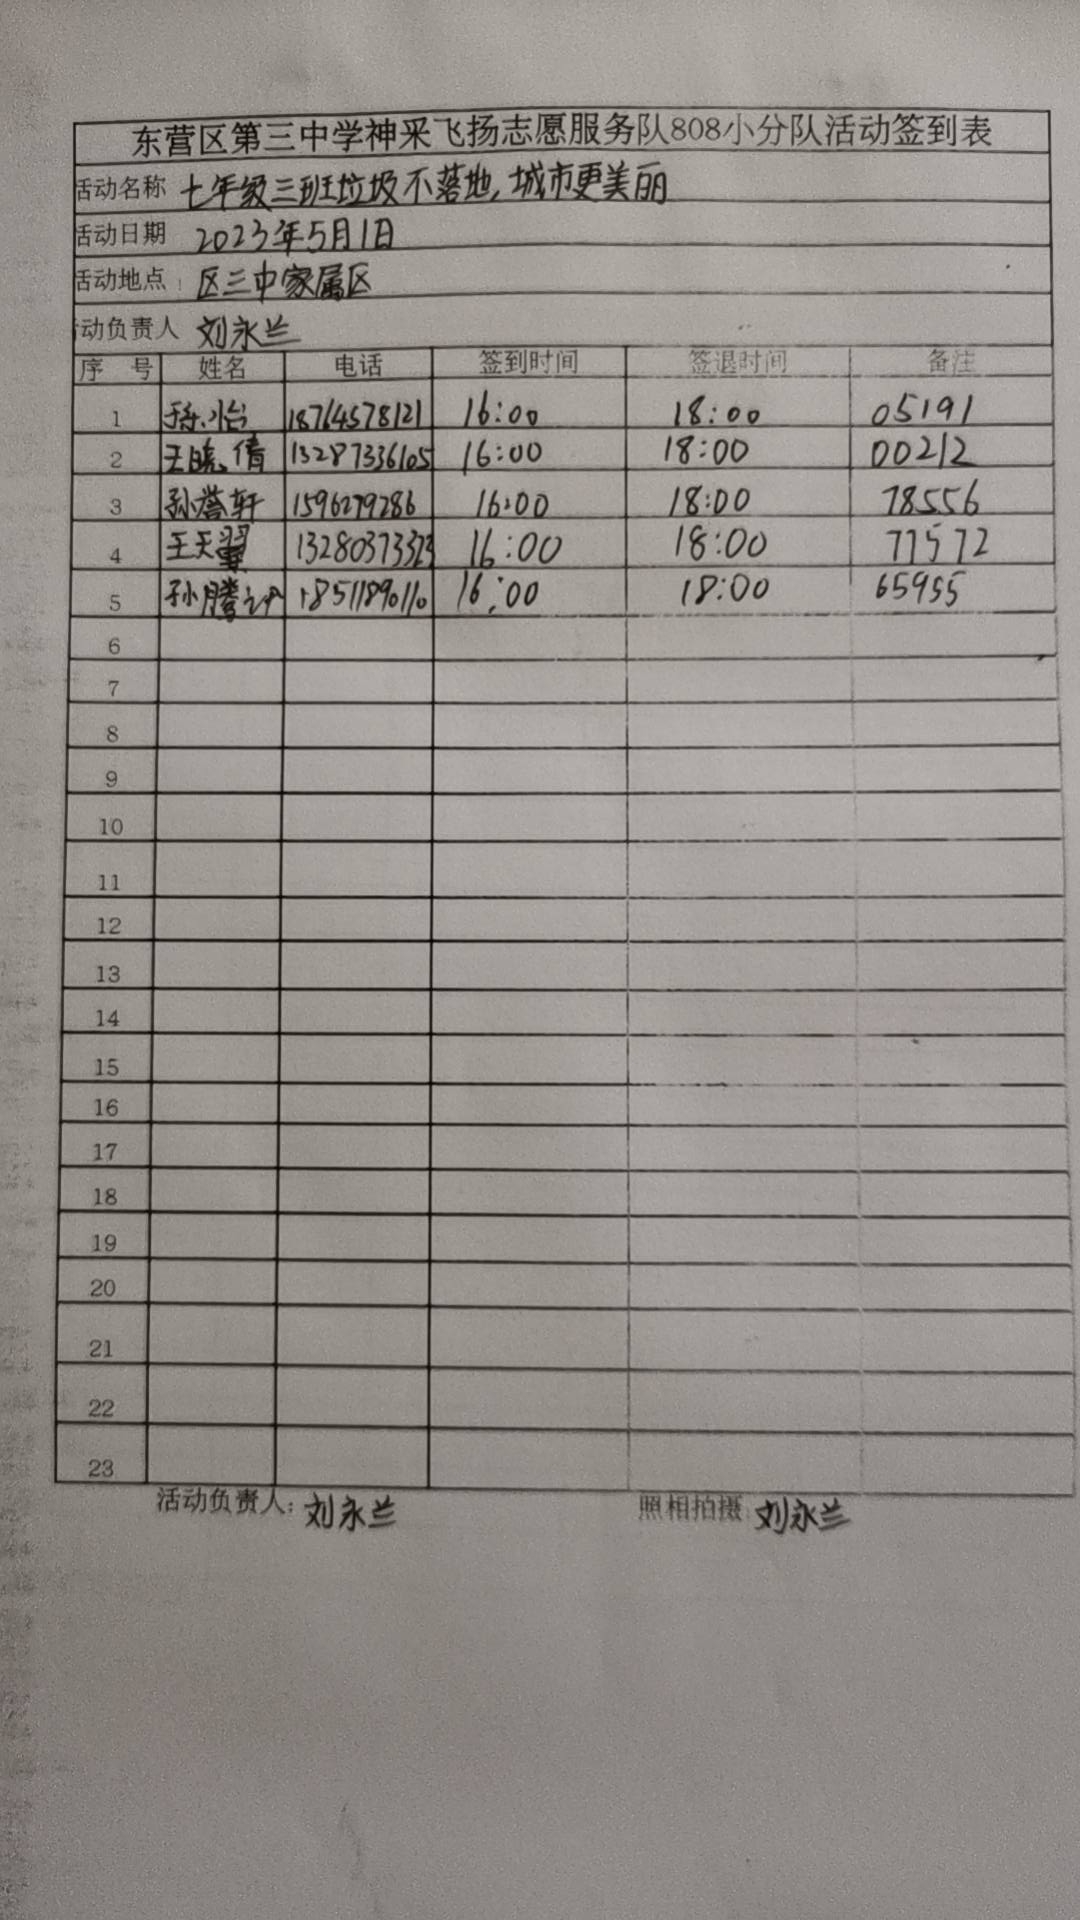 东营区第三中学神采飞扬志愿服务队808小分队活动签到表
活动名称 七年级三班垃圾不落地,城市更美丽
活动日期 2023年5月1日
活动地点: 区三中家属区
活动负责人 刘永兰
序号 姓名 电话 签到时间 签退时间 备注
1 18764578121 16:00 18:00 05191
2 王晓倩 13287336105 16:00 18:00 00212
3 孙誉轩 1596279286 16:00 18:00 78556
4 王天翼 13280373323 16:00 18:00 77572
5 孙腾 18511890110 16:00 18:00 65955
6
7
8
9
10
11
12
13
14
15
16
17
18
19
20
21
22
23
活动负责人: 刘永兰 照相拍摄 刘永兰